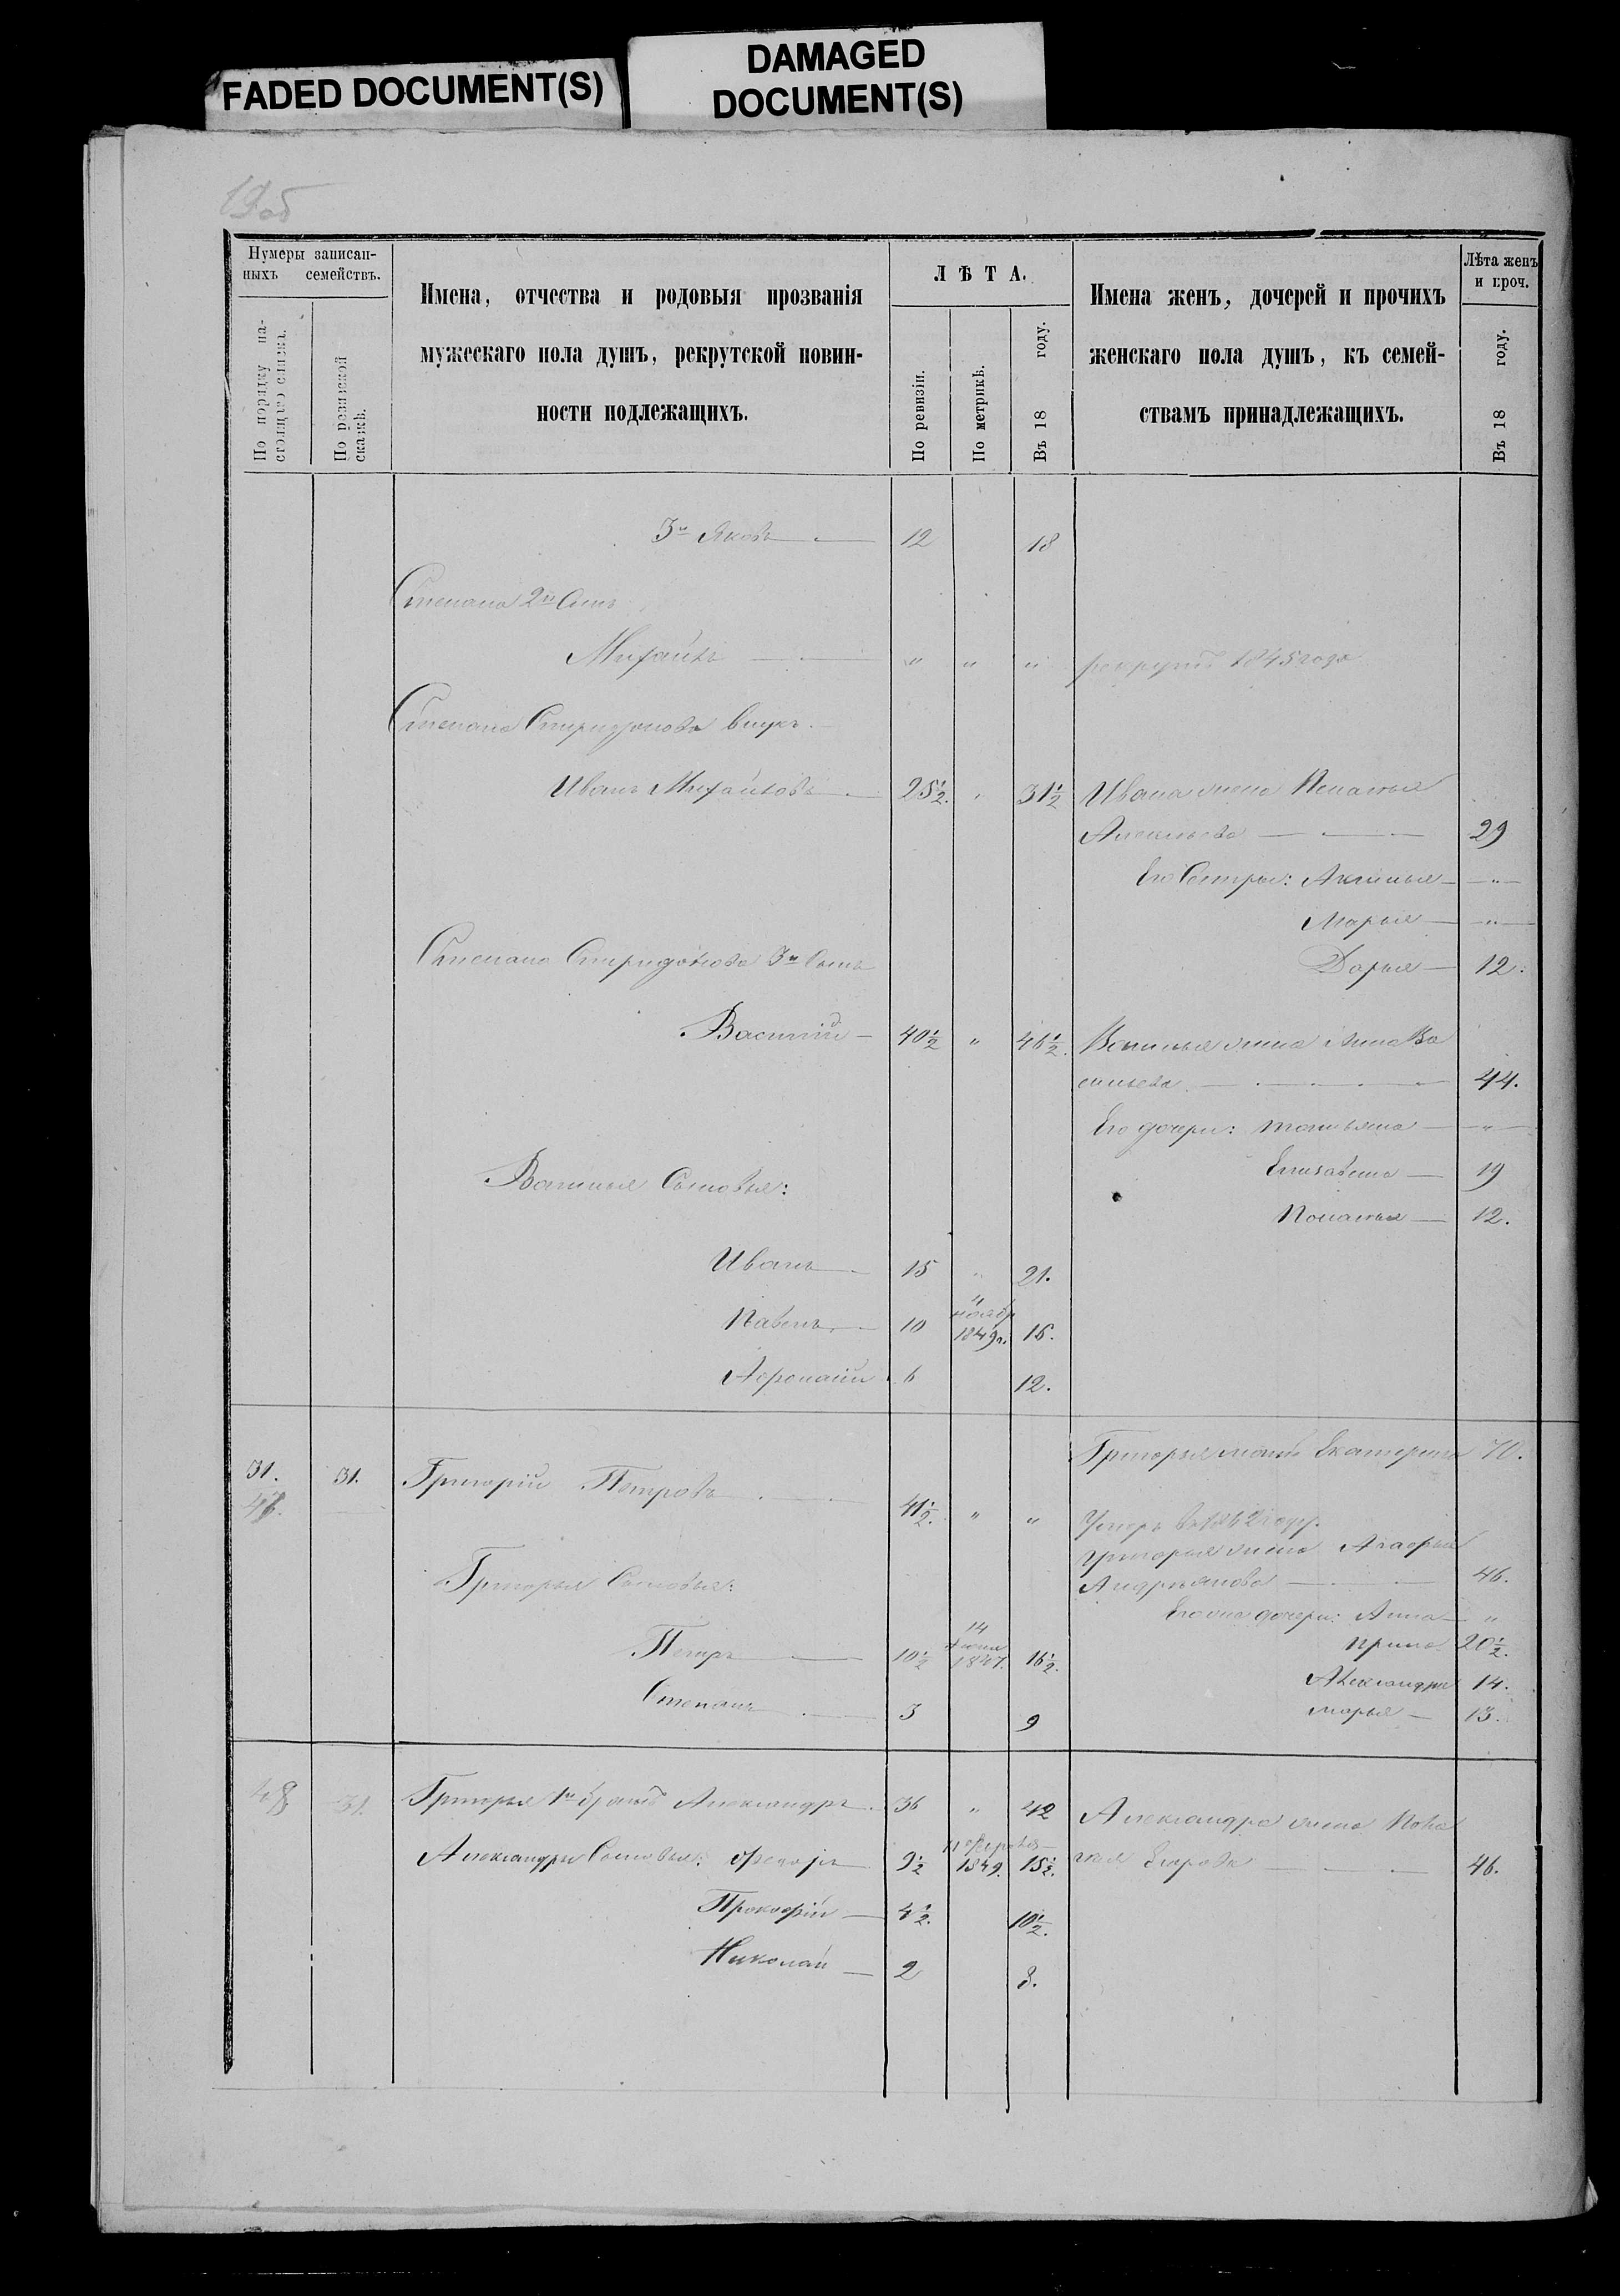 FADED DOCUMENT(S)
DAMAGED
DOCUMENT(S)
19об
Нумеры записан-
ныхъ семействъ.
По порядку на-
стоящаго списка.
По ревизской
сказкѣ.
Имена, отчества и родовыя прозванія
мужескаго пола душъ, рекрутской повин-
ности подлежащихъ.
ЛѢТА.
По ревизіи.
По метрикѣ.
Въ 18 году.
Имена женъ, дочерей и прочихъ
женскаго пола душъ, къ семей-
ствамъ принадлежащихъ.
Лѣта женъ
и проч.
Въ 18 году.
3й Яковъ — 12 18
Степана 2й Сынъ
Михайлъ — " " " рекрутъ 1845 года
Степана Спиридонова внукъ
Иванъ Михайловъ — 25½. " 31½ Ивана жена Пелагья
— 29
Его Сестры: Аксинья — "
Марья — "
Дарья — 12.
Степана Спиридонова 3й Сынъ
Василій — 40½ " 46½. Василья жена Анна Ва
сильева — 44.
Его дочери: Татьяна — "
Елизавета — 19
Пелагья — 12.
Василья Сыновья:
Иванъ — 15 " 21.
Павелъ — 10 4 ноябр 1849г. 16.
6 12.
31. 31. Григорій Петровъ — 41½. " "
Григорья мать Екатерина 70.
Умеръ въ
Григорья жена
Андреянова — 46.
Григорья Сыновья:
дочери: Анна — "
Петръ — 10½ 14 1847. 16½.
Ирина 20½.
Александра 14.
Степанъ — 3 9
Марья — 13.
48 31. Григорья 1й братъ Александръ 36 " 42 Александра жена Пела
Александры Сыновья: Ѳедоръ 9½ 1849. 15½. гея Егорова — 46.
Прокофій — 4½. 10½.
Николай — 2 8.